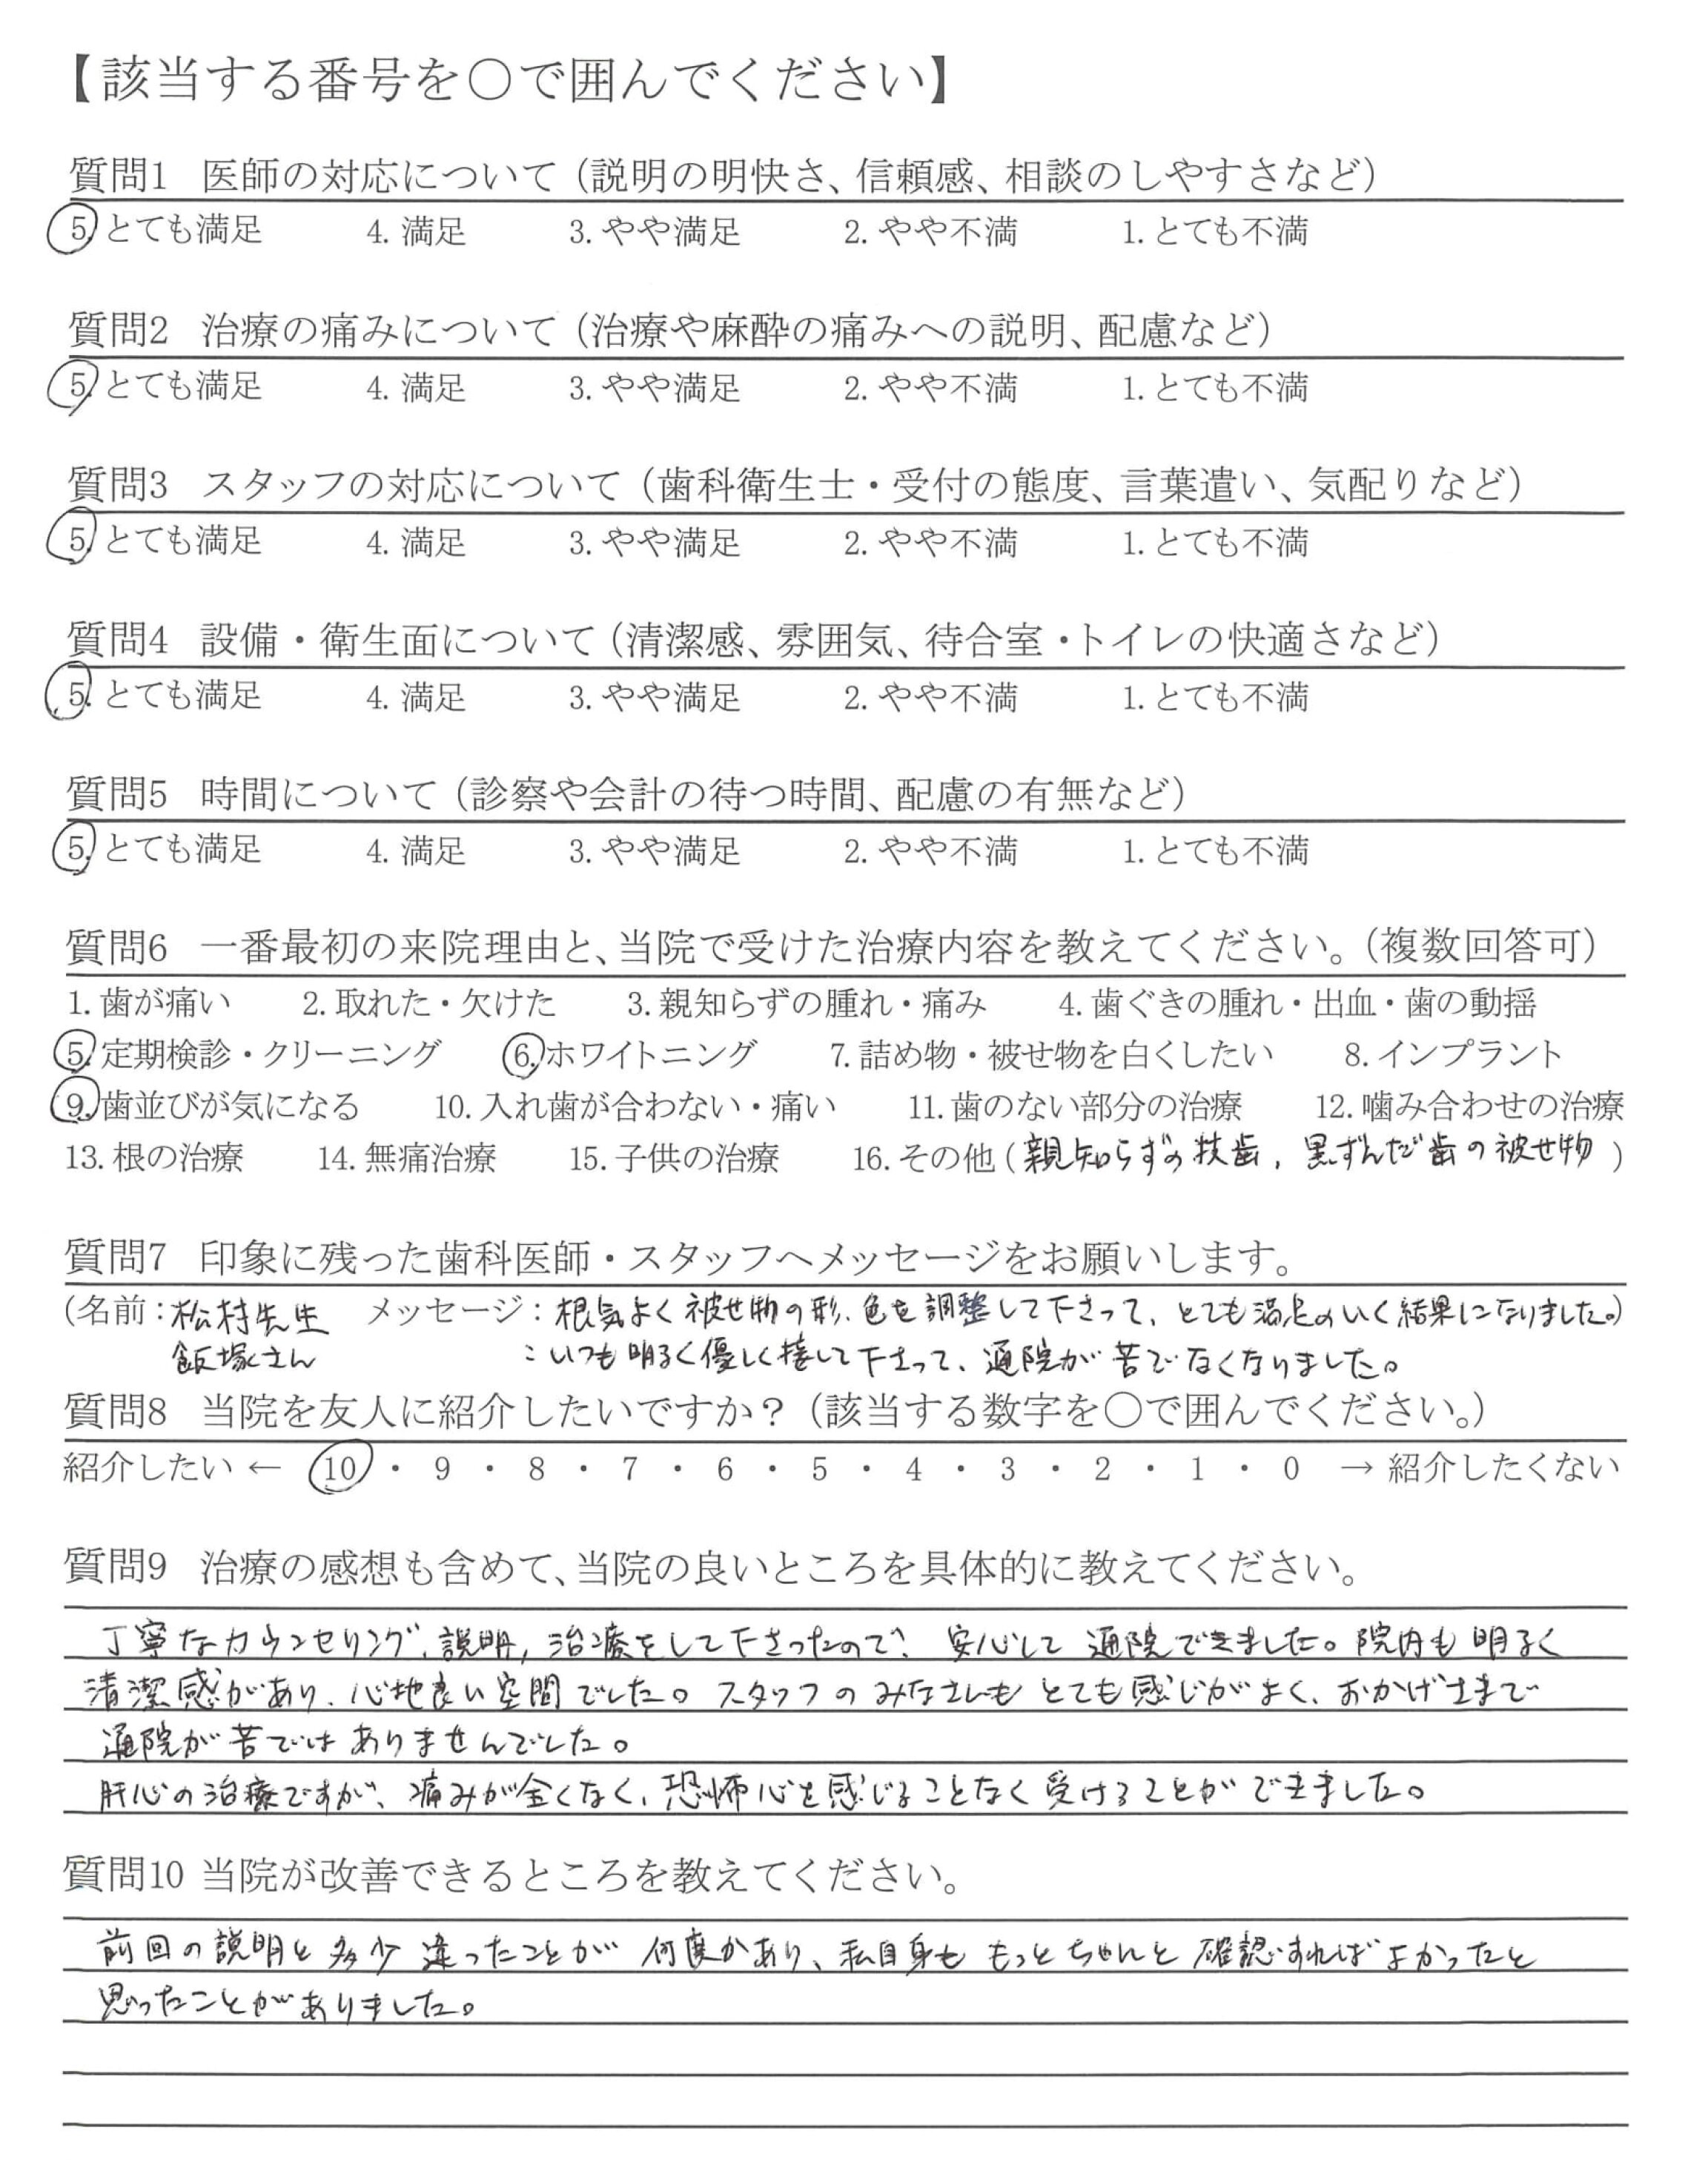 【該当する番号を○で囲んでください】
質問1 医師の対応について（説明の明快さ、信頼感、相談のしやすさなど）
5. とても満足 4. 満足 3. やや満足 2. やや不満 1. とても不満
質問2 治療の痛みについて（治療や麻酔の痛みへの説明、配慮など）
5. とても満足 4. 満足 3. やや満足 2. やや不満 1. とても不満
質問3 スタッフの対応について（歯科衛生士・受付の態度、言葉遣い、気配りなど）
5. とても満足 4. 満足 3. やや満足 2. やや不満 1. とても不満
質問4 設備・衛生面について（清潔感、雰囲気、待合室・トイレの快適さなど）
5. とても満足 4. 満足 3. やや満足 2. やや不満 1. とても不満
質問5 時間について（診察や会計の待つ時間、配慮の有無など）
5. とても満足 4. 満足 3. やや満足 2. やや不満 1. とても不満
質問6 一番最初の来院理由と、当院で受けた治療内容を教えてください。（複数回答可）
1. 歯が痛い 2. 取れた・欠けた 3. 親知らずの腫れ・痛み 4. 歯ぐきの腫れ・出血・歯の動揺
5. 定期検診・クリーニング 6. ホワイトニング 7. 詰め物・被せ物を白くしたい 8. インプラント
9. 歯並びが気になる 10. 入れ歯が合わない・痛い 11. 歯のない部分の治療 12. 噛み合わせの治療
13. 根の治療 14. 無痛治療 15. 子供の治療 16. その他（親知らずの抜歯, 黒ずんだ歯の被せ物）
質問7 印象に残った歯科医師・スタッフへメッセージをお願いします。
（名前：松村先生 メッセージ：根気よく被せ物の形、色を調整して下さって、とても満足のいく結果になりました。）
飯塚さん ：いつも明るく優しく接して下さって、通院が苦でなくなりました。
質問8 当院を友人に紹介したいですか？（該当する数字を○で囲んでください。）
紹介したい ← 10 ・ 9 ・ 8 ・ 7 ・ 6 ・ 5 ・ 4 ・ 3 ・ 2 ・ 1 ・ 0 → 紹介したくない
質問9 治療の感想も含めて、当院の良いところを具体的に教えてください。
丁寧なカウンセリング、説明, 治療をして下さったので、安心して通院できました。院内も明るく
清潔感があり、心地良い空間でした。スタッフのみなさんもとても感じがよく、おかげさまで
通院が苦ではありませんでした。
肝心の治療ですが、痛みが全くなく、恐怖心を感じることなく受けることができました。
質問10 当院が改善できるところを教えてください。
前回の説明と多少違ったことが何度かあり、私自身ももっとちゃんと確認すればよかったと
思ったことがありました。